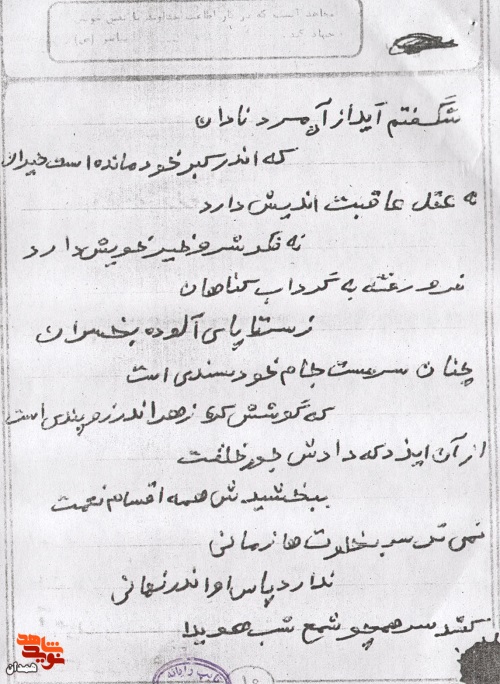 مجاهد آنست که در راه اطاعت خداوند با نفس خود
جهاد کند.
شگفتم آید از آن مرد نادان
که اندر کبر خود مانده است حیران
نه عقل عاقبت اندیش دارد
نه فکر شر و خیر خویش دارد
فرو رفته به گرداب گناهان
ز سر تا پای آلوده بخسران
چنان سرمست جام خودپسندی است
که گوشش کر ز هر اندرز و پندی است
از آن ایزد که دادش جور خلقت
ببخشیدش همه اقسام نعمت
نمی ترسد بخلوت ها زمانی
ندارد پاس او اندر نهانی
کشد سر همچو شمع شب هویدا
نوید شاهد
همدان